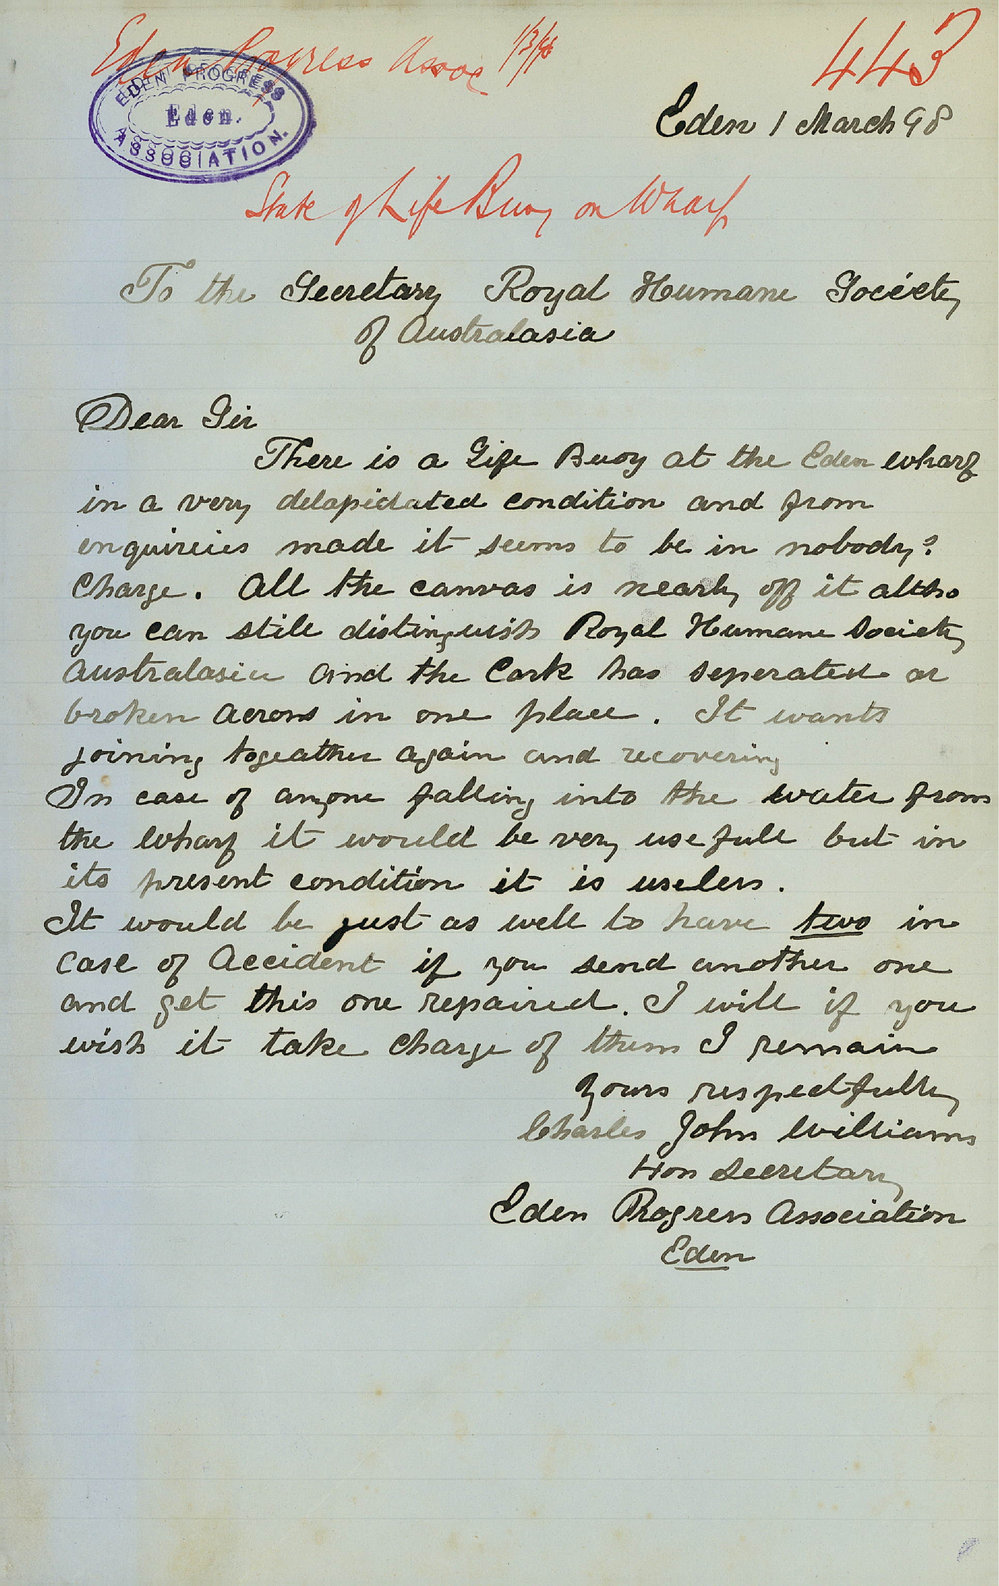 Eden Progress Assoc 1/3/98
443
EDEN PROGRESS
Eden.
ASSOCIATION.
Eden 1 March 98
State of Life Buoy on Wharf
To the Secretary Royal Humane Society
of Australasia
Dear Sir
There is a Life Buoy at the Eden wharf
in a very delapidated condition and from
enquireies made it seems to be in nobodys
Charge. All the canvas is nearly off it altho
you can still distinguish Royal Humane Society
Australasia and the Cork has seperated or
broken across in one place. It wants
joining togeather again and recovering
In case of anyone falling into the water from
the wharf it would be very usefull but in
its present condition it is useless.
It would be just as well to have two in
case of Accident if you send another one
and get this one repaired. I will if you
wish it take charge of them I remain
Yours respectfully
Charles John Williams
Hon Secretary
Eden Progress Association
Eden